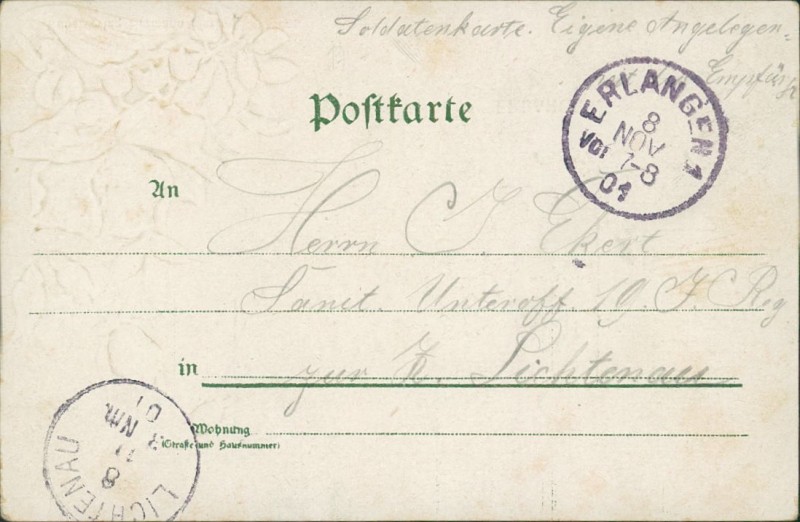 Soldatenkarte. Eigene Angelegen-
Empfäng
Postkarte
ERLANGEN 1
8
NOV
Vor 7-8
01
An Herrn J. Ekert
Sanit. Unteroff. 19. J. Reg
in zur Z. Lichtenau
Wohnung
(Straße und Hausnummer)
LICHTENAU
8
11
Nm.
01